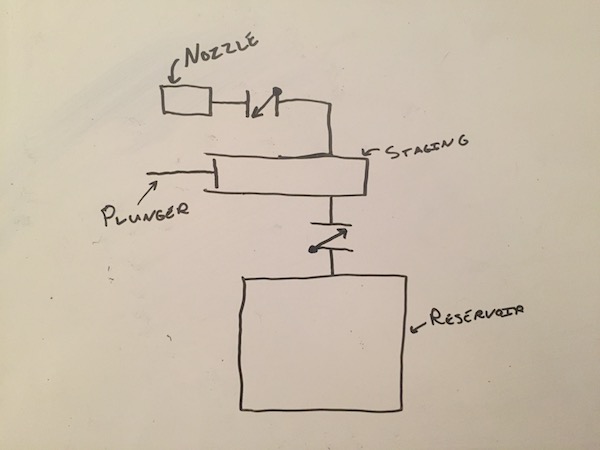 NOZZLE
STAGING
PLUNGER
RESERVOIR